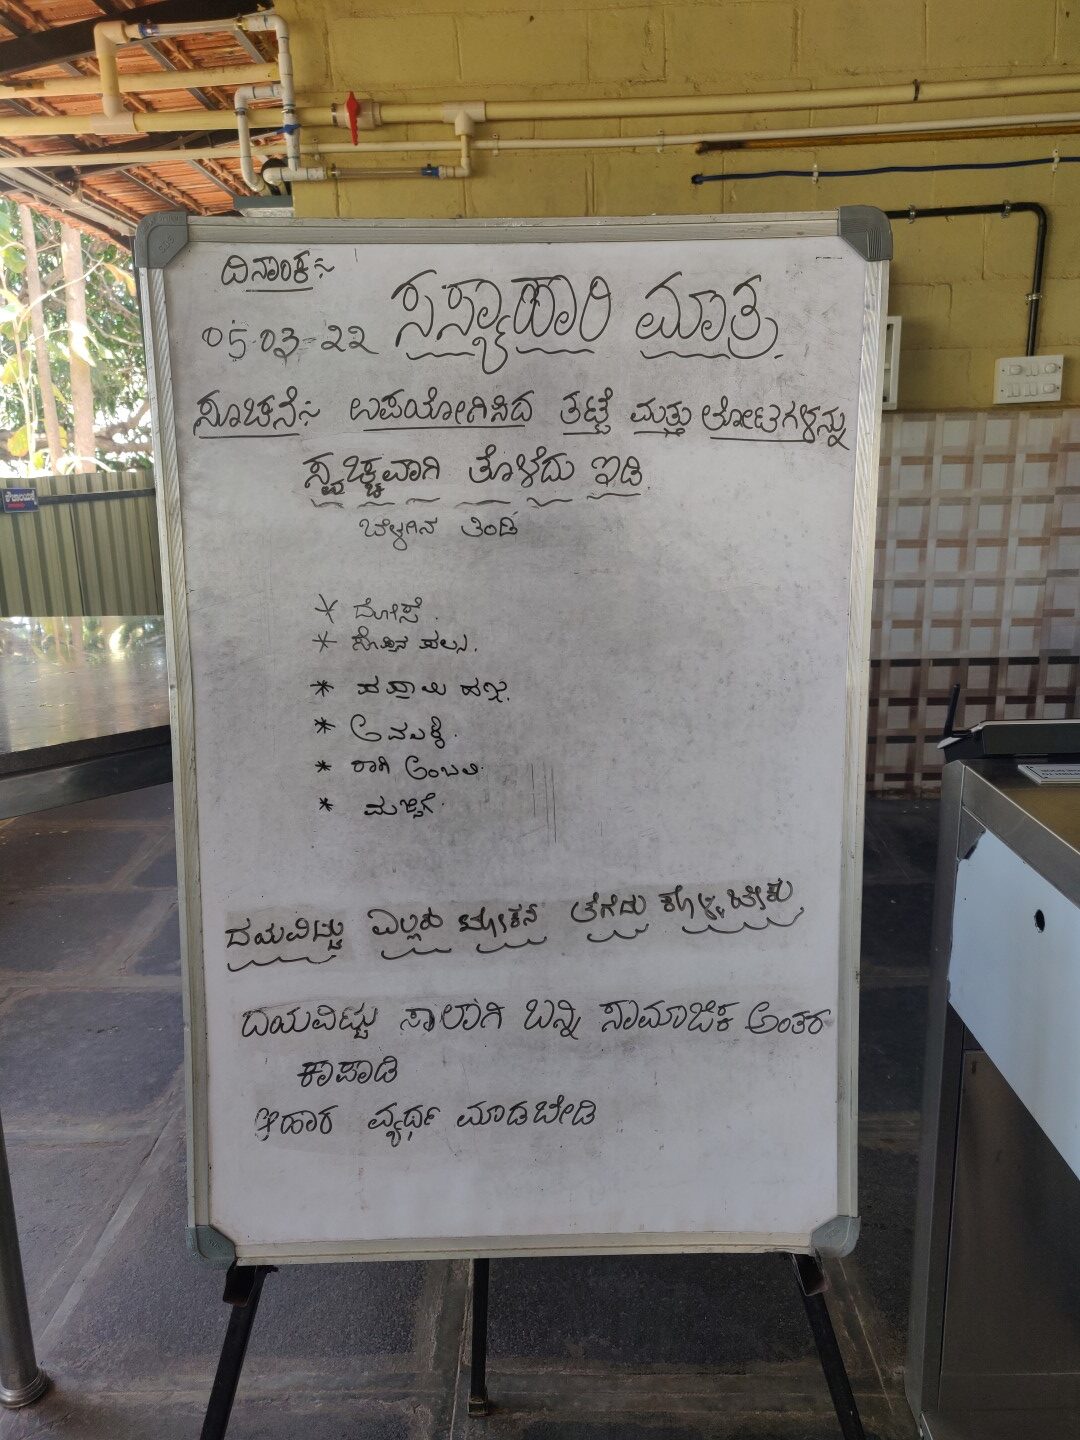 ದಿನಾಂಕ:-
05-03-22
ಸಸ್ಯಾಹಾರಿ ಮಾತ್ರ.
ಸೂಚನೆ:- ಉಪಯೋಗಿಸಿದ ತಟ್ಟೆ ಮತ್ತು ಲೋಟಗಳನ್ನು
ಸ್ವಚ್ಚವಾಗಿ ತೊಳೆದು ಇಡಿ.
ಬೆಳ್ಳಗಿನ ತಿಂಡಿ
* ದೋಸೆ.
* ಪಪ್ಪಾಯಿ ಹಣ್ಣು.
* ರಾಗಿ ಅಂಬಲಿ.
* ಮಜ್ಜಿಗೆ.
ದಯವಿಟ್ಟು ಎಲ್ಲರು ಟೋಕನ್ ತೆಗೆದು ಕೊಳ್ಳಬೇಕು
ದಯವಿಟ್ಟು ಸಾಲಾಗಿ ಬನ್ನಿ ಸಾಮಾಜಿಕ ಅಂತರ
ಕಾಪಾಡಿ
ಆಹಾರ ವ್ಯರ್ಥ ಮಾಡಬೇಡಿ